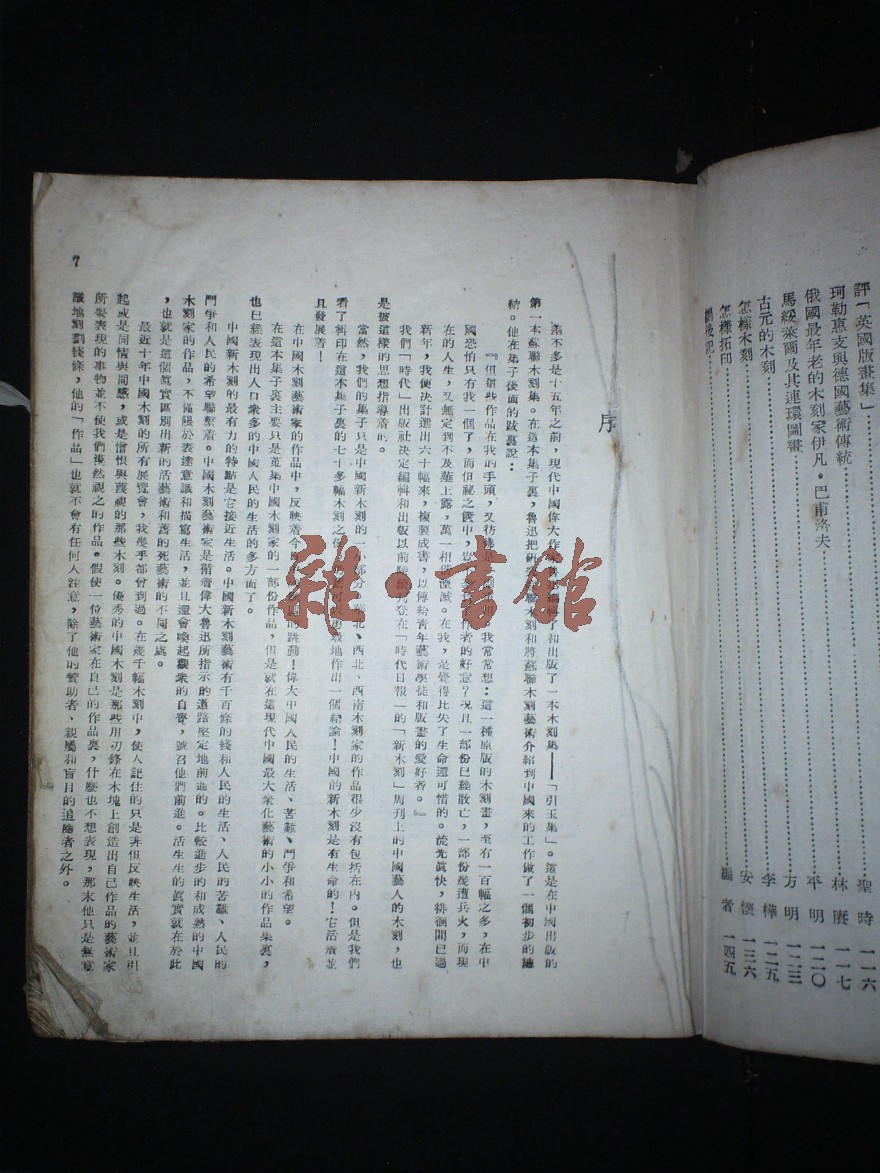 評「英國版畫集」 聖時 一一六
珂勒惠支與德國藝術傳統 林賡 一一七
俄國最年老的木刻家伊凡・巴甫洛夫 平明 一二〇
馬綏萊爾及其連環圖畫 方明 一二三
古元的木刻 李樺 一二五
怎樣木刻 安懷 一三六
怎樣拓印
編後記 編者 一四五
序
差不多是十五年之前,現代中國偉大作家魯迅編輯了和出版了一本木刻集——「引玉集」。這是在中國出版的
第一本蘇聯木刻集。在這本集子裏,魯迅把研究蘇聯木刻和將蘇聯木刻藝術介紹到中國來的工作做了一個初步的總
結。他在集子後面的跋裏說:
『但這些作品在我的手頭,又彷彿是 我常常想:這一種原版的木刻畫,至有一百幅之多,在中
國恐怕只有我一個了,而但秘之篋中,豈不 作者的好意?況且一部份已經散亡,一部份幾遭兵火,而現
在的人生,又無定到不及薤上露,萬一相偕湮滅。在我,是覺得比失了生命還可惜的。流光眞快,徘徊間已過
新年,我便決計選出六十幅來,複製成書,以傳給青年藝術學徒和版畫的愛好者。』
我們「時代」出版社決定編輯和出版以前 刊登在「時代日報」的「新木刻」周刊上的中國藝人的木刻,也
是被這樣的思想指導着的。
當然,我們的集子只是中國新木刻的一小部分, 北、西北、西南木刻家的作品很少沒有包括在內。但是我們
看了輯印在這本集子裏的七十多幅木刻之後, 地作出一個結論!中國的新木刻是有生命的!它活着並
且發展着!
在中國木刻藝術家的作品中,反映着今 的跳動!偉大中國人民的生活、苦難、鬥爭和希望。
在這本集子裏主要只是蒐集中國木刻家的一部份作品,但是就在這現代中國最大衆化藝術的小小的作品集裏,
也已經表現出人口衆多的中國人民的生活的多方面了。
中國新木刻的最有力的特點是它接近生活。中國新木刻藝術有千百條的綫和人民的生活、人民的苦難、人民的
鬥爭和人民的希望聯繫着。中國木刻藝術家是循着偉大魯迅所指示的道路堅定地前進的。比較進步的和成熟的中國
木刻家的作品,不僅限於表達意識和描寫生活,並且還會喚起觀衆的自覺,號召他們前進。活生生的眞實就在於此
,也就是這個眞實區別出新的活藝術和舊的死藝術的不同之處。
最近十年中國木刻的所有展覽會,我幾乎都曾到過。在幾千幅木刻中,使人記住的只是非但反映生活,並且引
起或是同情與同感,或是憎恨與蔑視的那些木刻。優秀的中國木刻是那些用刀鋒在木塊上創造出自己作品的藝術家
所要表現的事物並不使我們漠然視之的作品。假使一位藝術家在自己的作品裏,什麼也不想表現,那末他只是無意
識地刻劃綫條,他的「作品」也就不會有任何人注意,除了他的贊助者、親屬和盲目的追隨者之外。
7
雜・書館